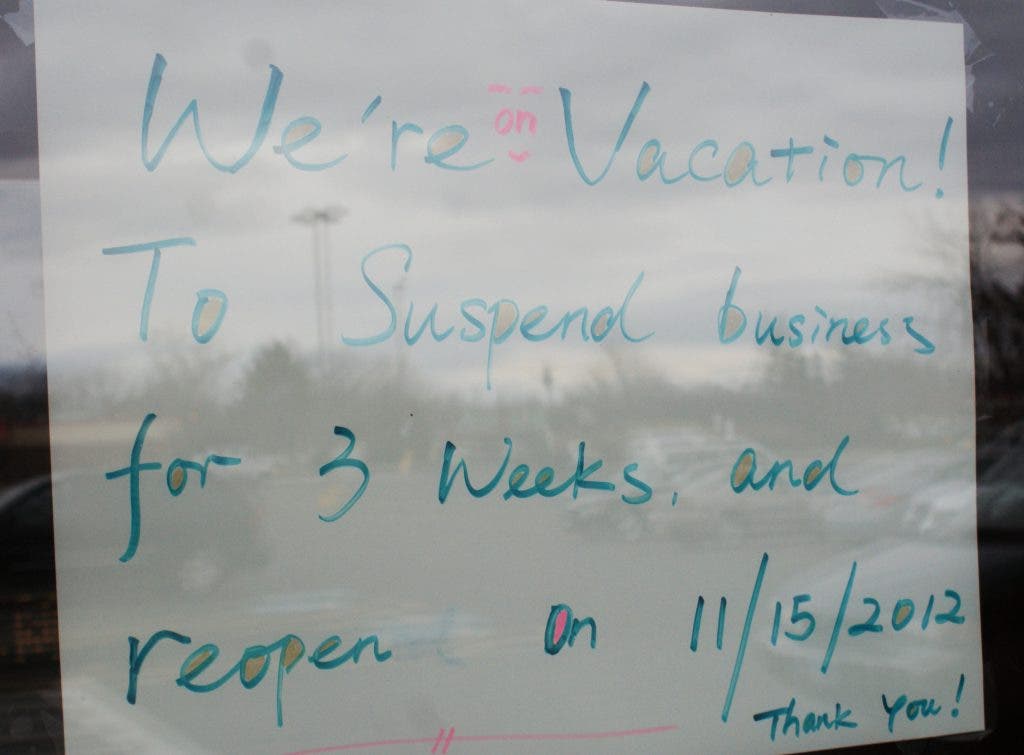 We're on Vacation!
To Suspend business
for 3 Weeks, and
reopen On 11/15/2012
Thank You!